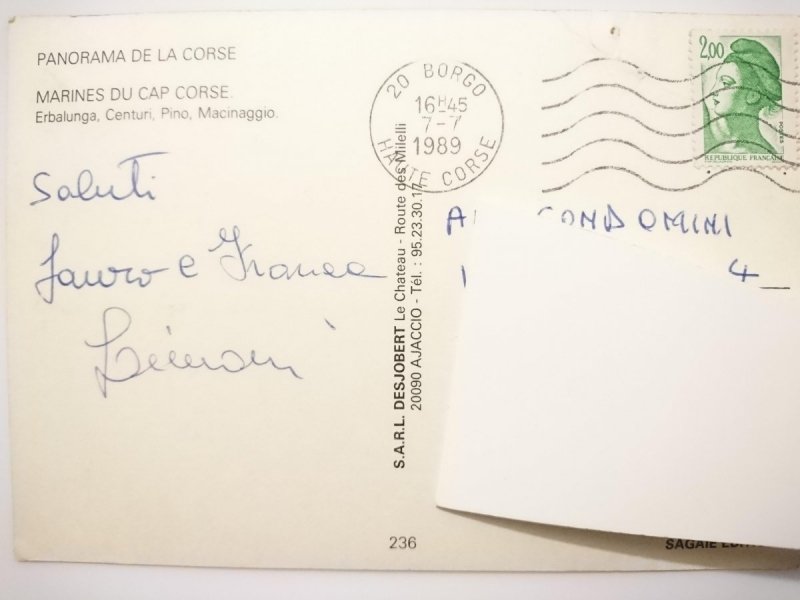 PANORAMA DE LA CORSE
MARINES DU CAP CORSE.
Erbalunga, Centuri, Pino, Macinaggio.
20 BORGO
16H45
7-7
1989
HAUTE CORSE
2,00
POSTES
REPUBLIQUE FRANCAISE
Saluti
Lauro e Franca
S.A.R.L. DESJOBERT Le Chateau - Route des Milelli
20090 AJACCIO - Tél. : 95.23.30.17
CONDOMINI
4
236
SAGAIE